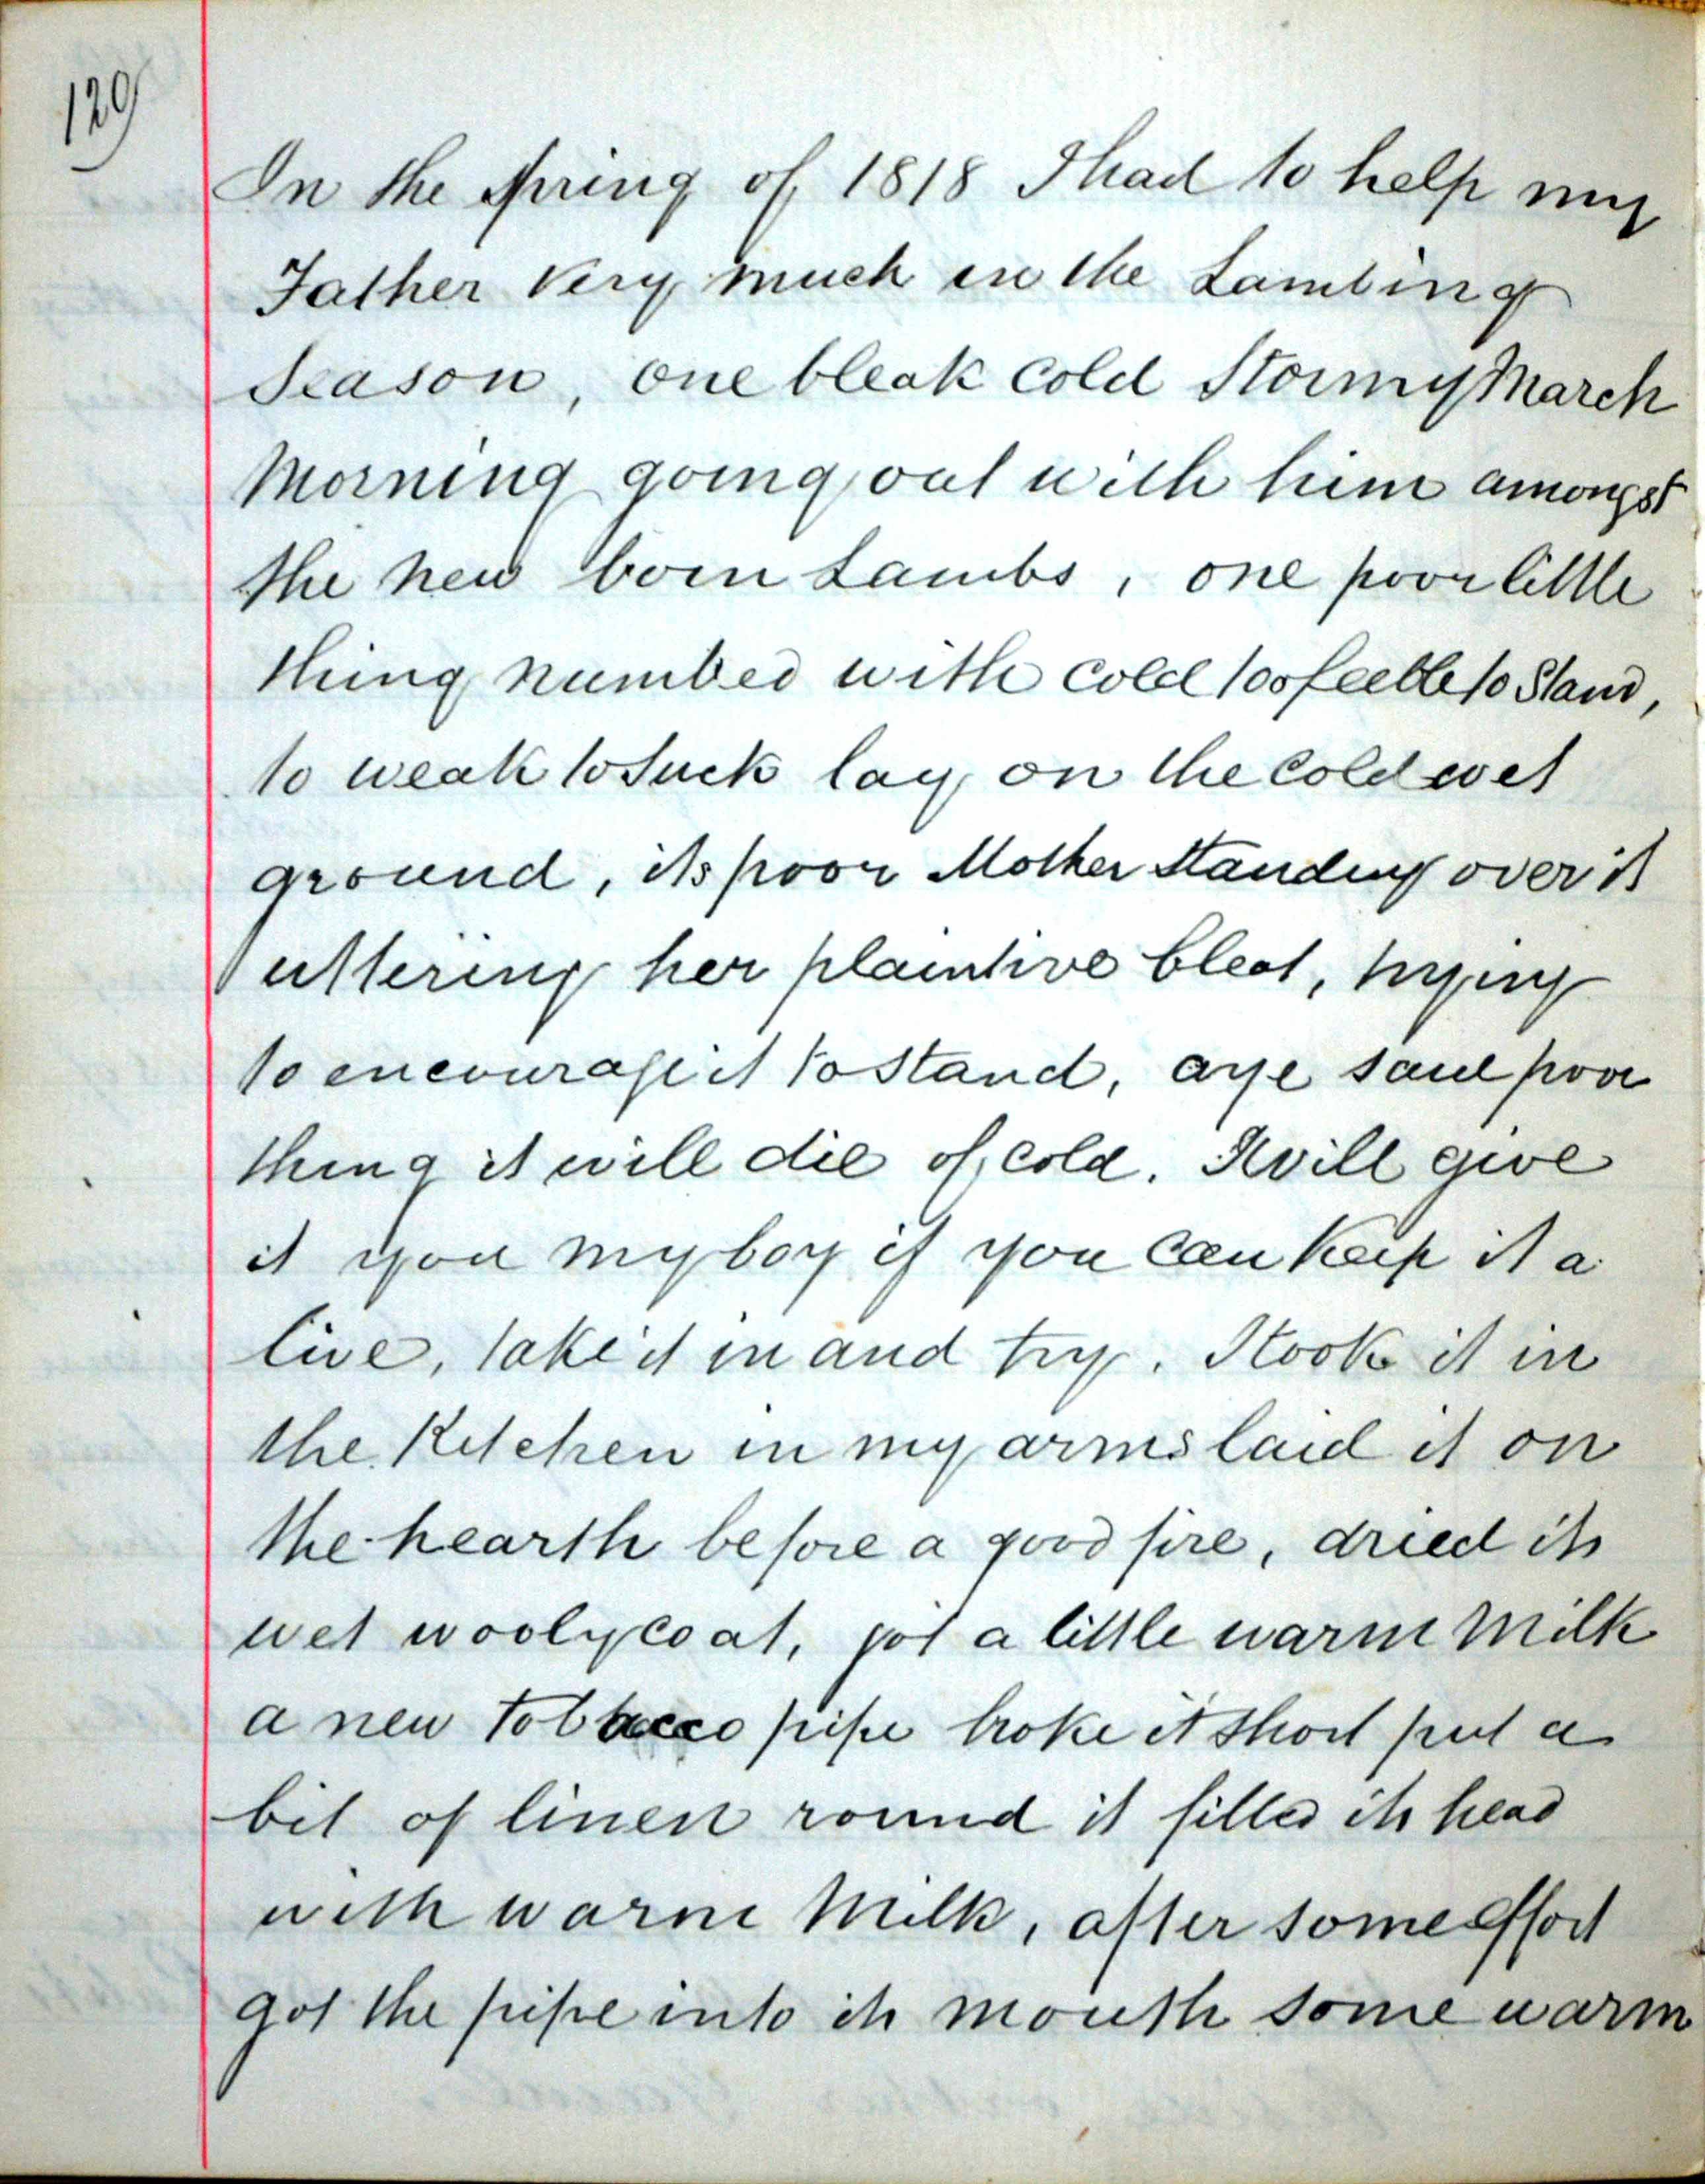 129
In the Spring of 1818 I had to help my
Father Very much in the Lambing
Season, one bleak cold Stormy March
Morning going out with him amongst
the new born Lambs, one poor little
thing numbed with cold too feeble to Stand,
to weak to Suck lay on the Cold wet
ground, its poor Mother Standing over it
uttering her plaintive bleat, trying
to encourage it to Stand, aye saul poor
thing it will die of cold. I will give
it you my boy if you can Keep it a
live, take it in and try. I took it in
the Kitchen in my arms laid it on
the hearth before a good fire, dried its
wet wooly coat, got a little warm Milk
a new tobbacco pipe broke it Short put a
bit of linen round it filled its head
with warm Milk, after some effort
got the pipe into its mouth some warm